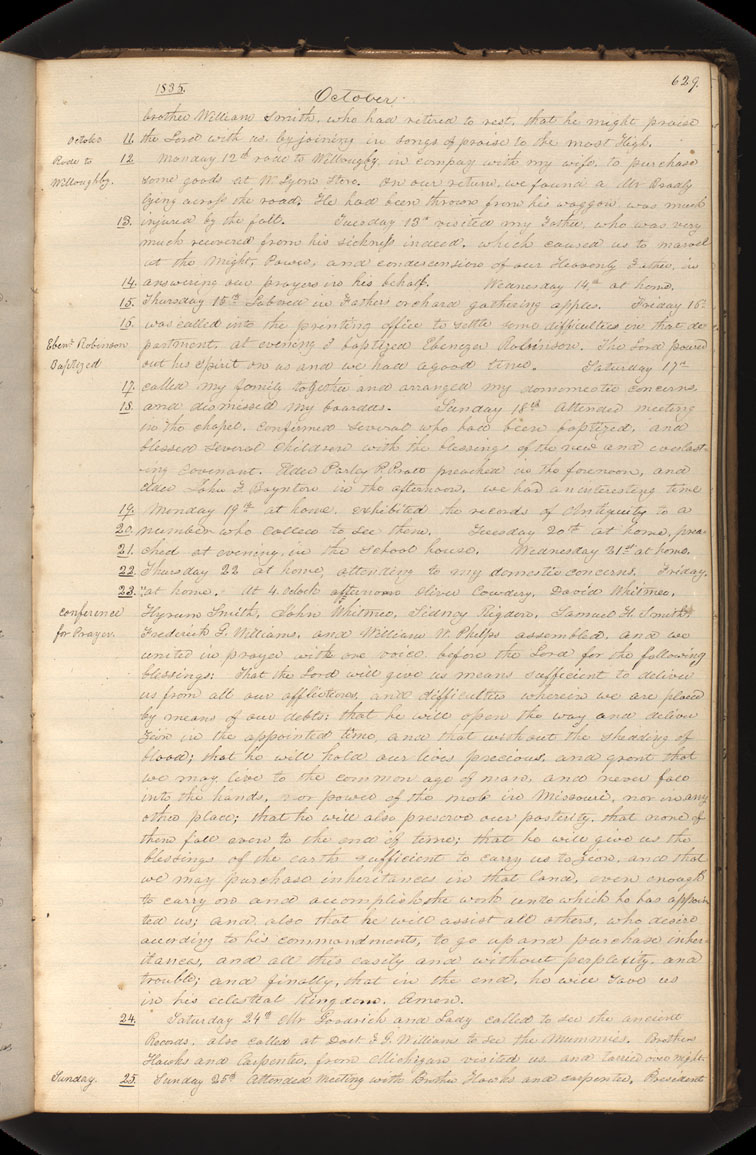 1835. 629.
October.
brother William Smith, who had retired to rest, that he might praise
October 11. the Lord with us, by joining in songs of praise to the most High.
Rode to 12. Monday 12th rode to Willoughby, in compay with my wife, to purchase
Willoughby. some goods at W. Lyons Store. On our return, we found a Mr Bradly
lying across the road; He had been thrown from his waggon, was much
13. injured by the fall. Tuesday 13th visited my Father, who was very
much recovered from his sickness indeed, which caused us to marvel
at the Might, Power, and condescension of our Heavenly Father, in
14. answering our prayers in his behalf. Wednesday 14th at home.
15. Thursday 15th Labored in Fathers orchard gathering apples. Friday 16th
16. was called into the printing office to settle some difficulties in that de
Ebenr. Robinson partment, at evening I baptized Ebenezer Robinson. The Lord poured
Baptized out his spirit on us and we had a good time. Saturday 17th
17. called my family together and arranged my domomestic concerns,
18. and dismissed my boarders. Sunday 18th Attended meeting
in the chapel, confirmed several who had been baptized, and
blessed several children with the blessings of the new and everlast-
ing covenant. Elder Parley P. Pratt preached in the forenoon, and
Elder John F. Boynton in the afternoon, we had an interesting time
19. Monday 19th at home. exhibited the records of Antiquity to a
20. number who called to see them. Tuesday 20th at home, prea-
21. ched at evening, in the school house. Wednesday 21st at home.
22. Thursday 22 at home, attending to my domestic concerns. Friday.
23. "at home." At 4 oclock afternoon Oliver Cowdery, David Whitmer,
Conference Hyrum Smith, John Whitmer, Sidney Rigdon, Samuel H. Smith
for Prayer. Frederick G. Williams, and William W. Phelps assembled, and we
united in prayer with one voice before the Lord for the following
blessings: That the Lord will give us means sufficient to deliver
us from all our afflictions, and difficulties wherein we are placed
by means of our debts; that he will open the way and deliver
Zion in the appointed time, and that without the shedding of
blood; that he will hold our lives precious, and grant that
we may live to the common age of man, and never fall
into the hands, nor power of the mob in Missouri, nor in any
other place; that he will also preserve our posterity, that none of
them fall even to the end of time; that he will give us the
blessings of the earth sufficient to carry us to Zion, and that
we may purchase inheritances in that land, even enough
to carry on and accomplish the work unto which he has appoin
ted us; and also that he will assist all others, who desire
according to his commandments, to go up and purchase inher-
itances, and all this easily and without perplexity, and
trouble; and finally, that in the end, he will save us
in his celestial Kingdom. Amen.
24. Saturday 24th Mr Goodrich and Lady called to see the ancient
Records, also called at Doct F. G. Williams to see the Mummies. Brothers
Hawks and Carpenter, from Michigan visited us, and tarried over night.
Sunday. 25. Sunday 25th Attended meeting with Brothers Hawks and carpenter, President